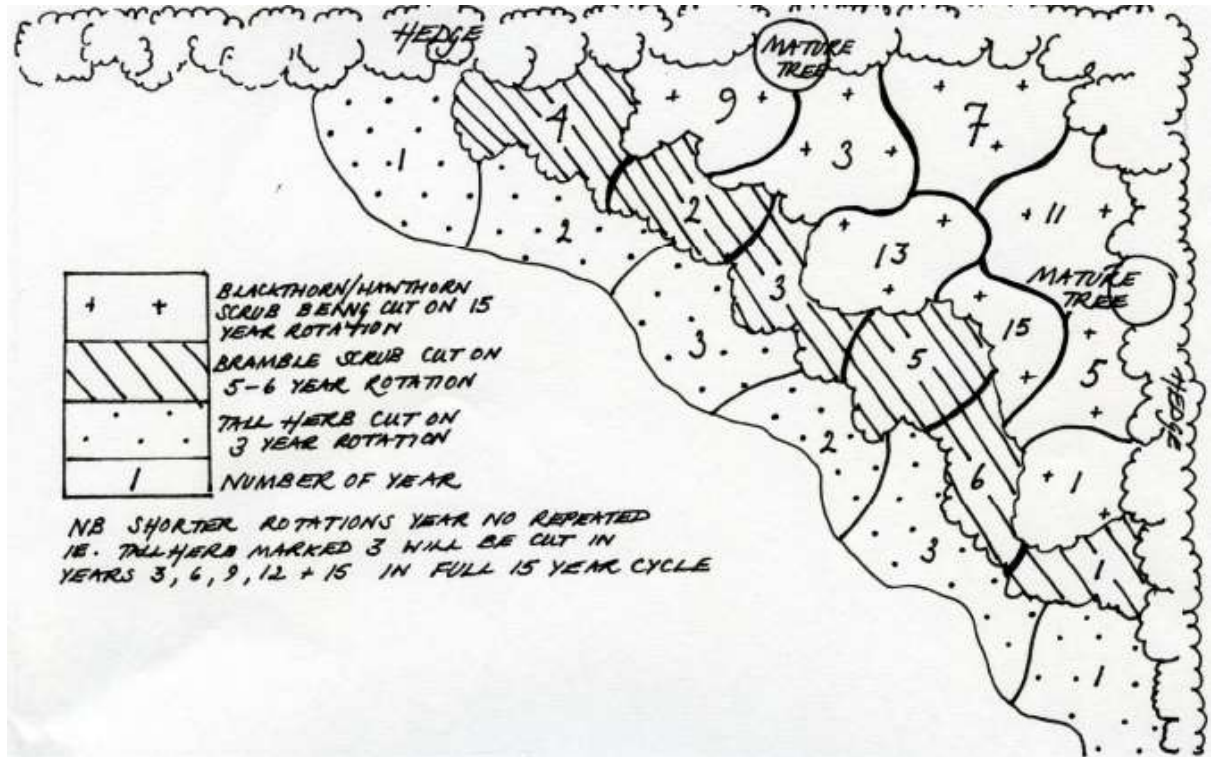 HEDGE
MATURE
TREE
4
9
3
7
1
2
2
11
13
3
MATURE
TREE
3
15
5
5
HEDGE
2
6
1
3
1
1
BLACKTHORN/HAWTHORN
SCRUB BEING CUT ON 15
YEAR ROTATION
BRAMBLE SCRUB CUT ON
5-6 YEAR ROTATION
TALL HERB CUT ON
3 YEAR ROTATION
1 NUMBER OF YEAR
NB SHORTER ROTATIONS YEAR NO REPEATED
IE. TALL HERB MARKED 3 WILL BE CUT IN
YEARS 3, 6, 9, 12 + 15 IN FULL 15 YEAR CYCLE